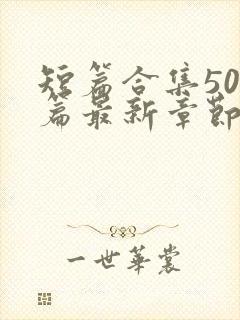 短篇合集50
篇最新章节
一世华裳